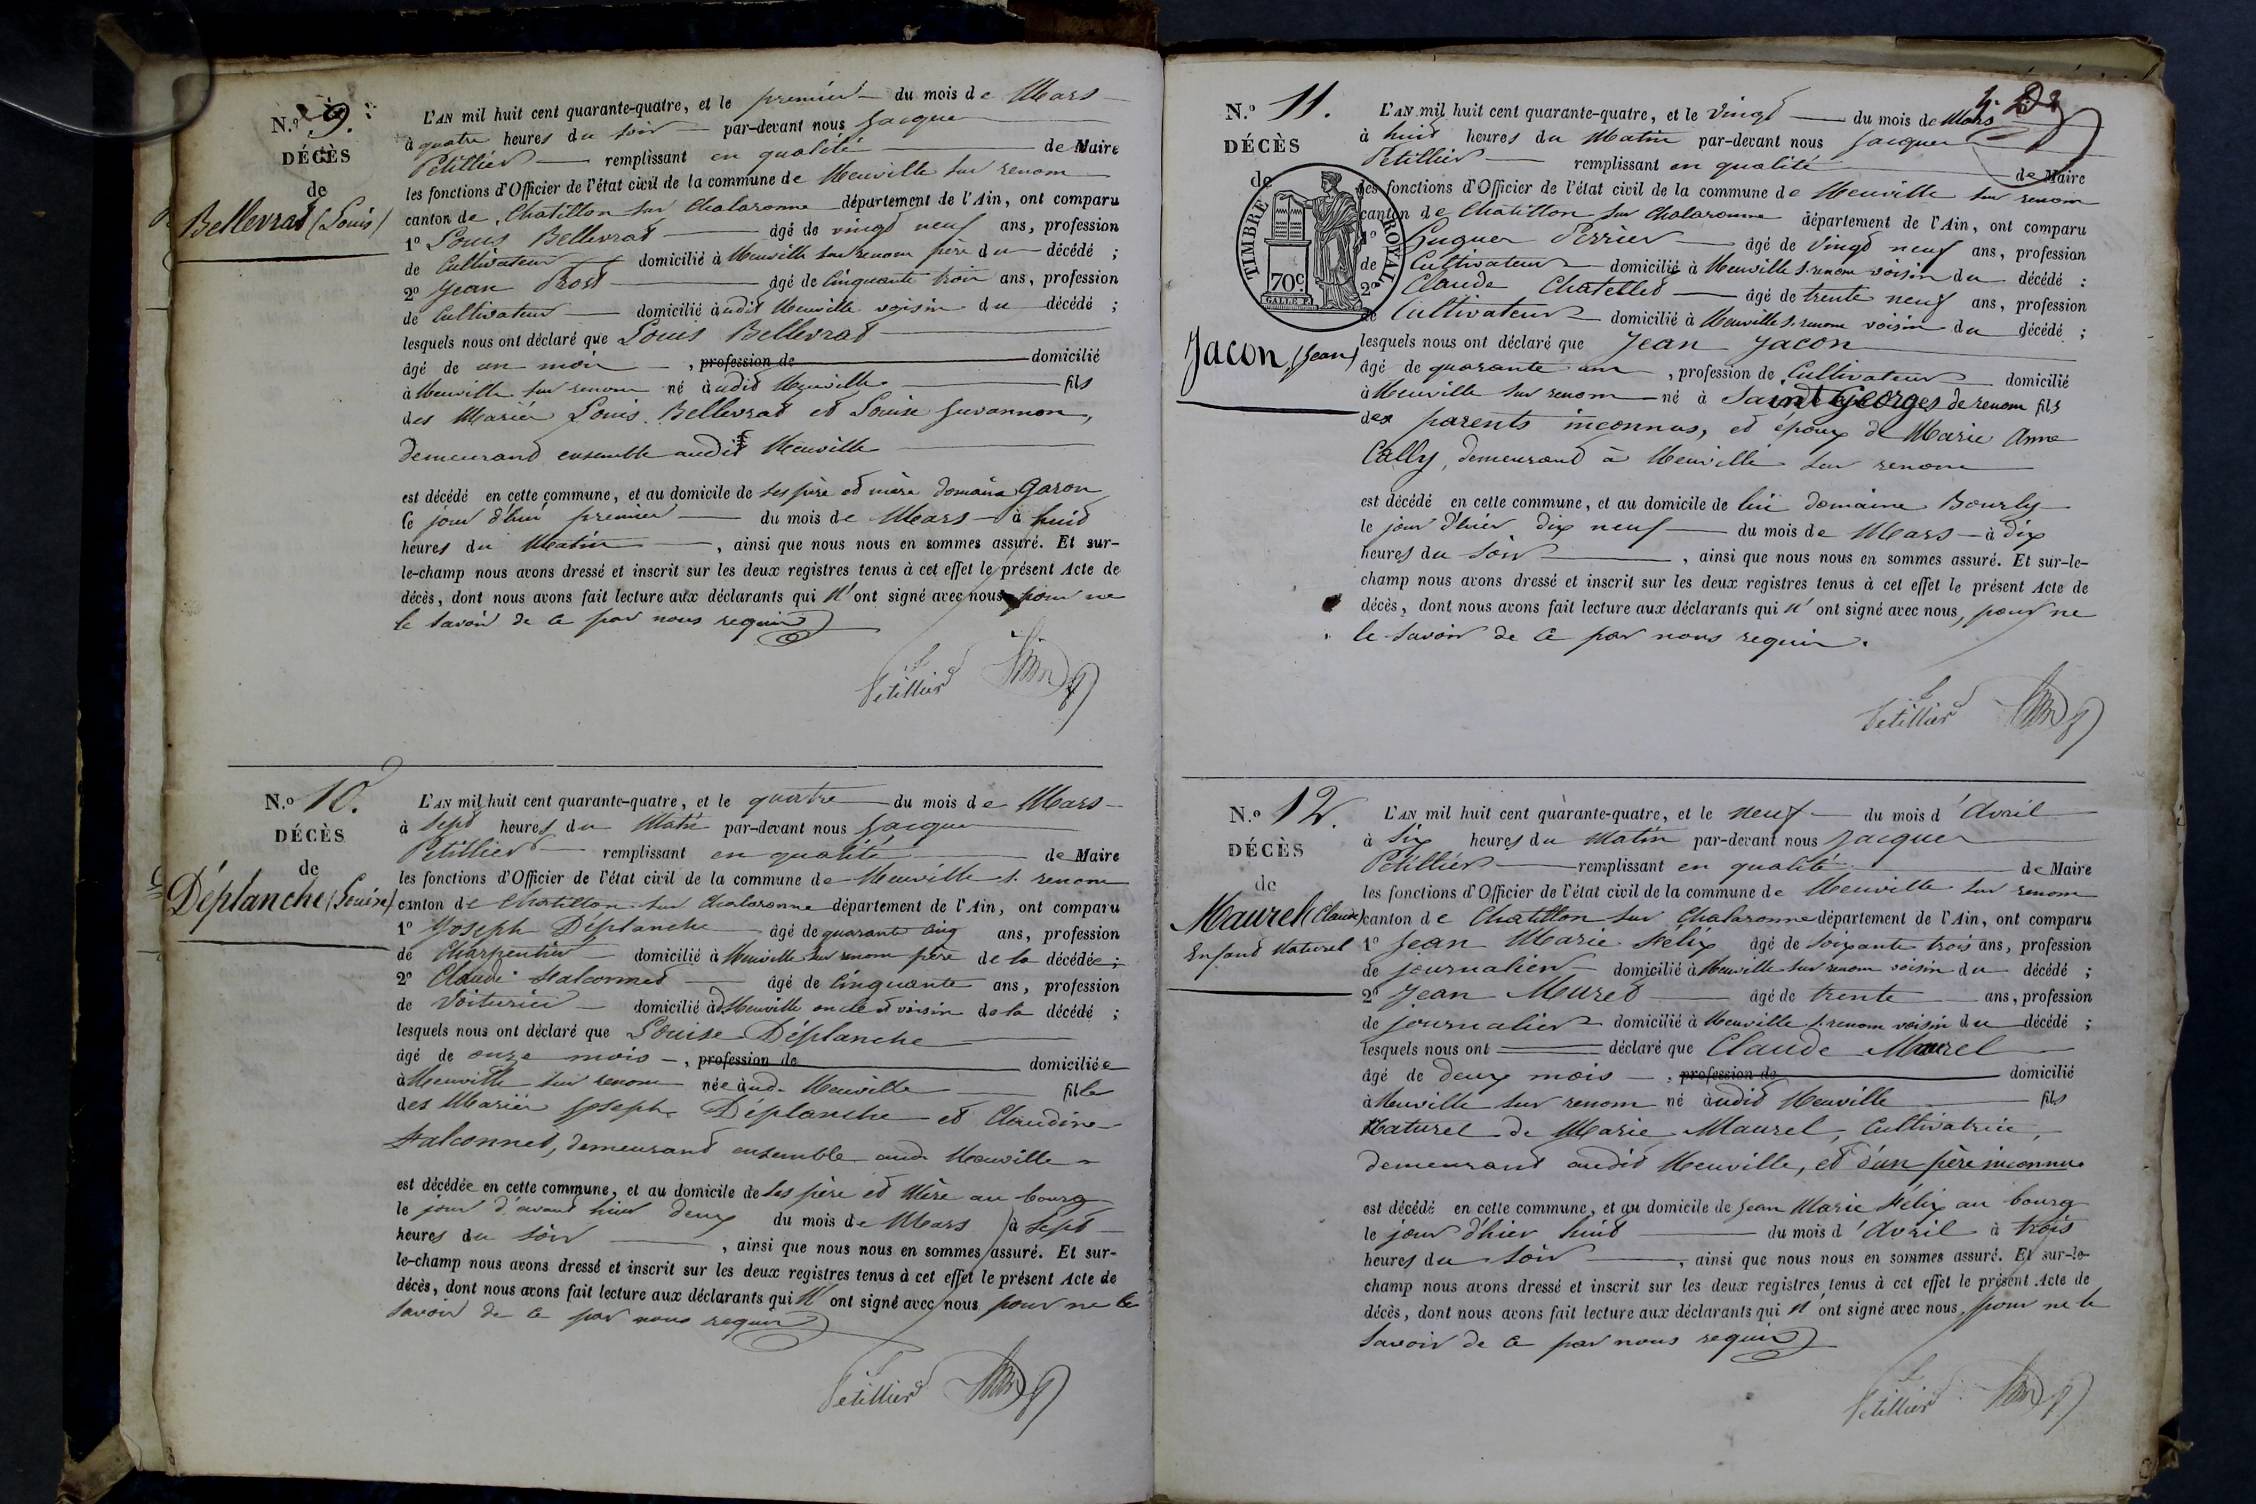 N.º 9.
DÉCÈS
de
Bellevrat (Louis)
L'AN mil huit cent quarante-quatre, et le premier du mois de Mars
à quatre heures du soir par-devant nous Jacques
Petillier remplissant en qualité de Maire
les fonctions d'Officier de l'état civil de la commune de Neuville sur renom
canton de Chatillon sur Chalaronne département de l'Ain, ont comparu
1º Louis Bellevrat âgé de vingt neuf ans, profession
de Cultivateur domicilié à Neuville sur renom père du décédé ;
2º Jean Prost âgé de Cinquante trois ans, profession
de Cultivateur domicilié audit Neuville voisin du décédé ;
lesquels nous ont déclaré que Louis Bellevrat
âgé de un mois , profession de domicilié
à Neuville sur renom né audit Neuville fils
des Mariés Louis Bellevrat et Louise
demeurant ensemble audit Neuville
est décédé en cette commune, et au domicile de ses père et mère domaine Garon
le jour d'hui premier du mois de Mars à huit
heures du Matin , ainsi que nous nous en sommes assuré. Et sur-
le-champ nous avons dressé et inscrit sur les deux registres tenus à cet effet le présent Acte de
décès, dont nous avons fait lecture aux déclarants qui n'ont signé avec nous pour ne
le savoir de ce par nous requis
Petillier
N.º 10.
DÉCÈS
de
Déplanche (Louise)
L'AN mil huit cent quarante-quatre, et le quatre du mois de Mars
à Sept heures du Matin par-devant nous Jacques
Petillier remplissant en qualité de Maire
les fonctions d'Officier de l'état civil de la commune de Neuville s. renom
canton de Chatillon sur Chalaronne département de l'Ain, ont comparu
1º Joseph Déplanche âgé de quarante cinq ans, profession
de Charpentier domicilié à Neuville sur renom père de la décédée ;
2º Claude Falconnet âgé de Cinquante ans, profession
de Voiturier domicilié à Neuville oncle et voisin de la décédé ;
lesquels nous ont déclaré que Louise Déplanche
âgé de onze mois , profession de domiciliée
à Neuville sur renom née aud. Neuville fille
des Mariés Joseph Déplanche et Claudine
Falconnet, demeurant ensemble aud. Neuville
est décédée en cette commune, et au domicile de ses père et Mère au bourg
le jour d'avant hier deux du mois de Mars à sept
heures du soir , ainsi que nous nous en sommes assuré. Et sur-
le-champ nous avons dressé et inscrit sur les deux registres tenus à cet effet le présent Acte de
décès, dont nous avons fait lecture aux déclarants qui n'ont signé avec nous pour ne le
savoir de ce par nous requis
Petillier
N.º 11.
DÉCÈS
de
TIMBRE ROYAL
70c
Jacon (Jean)
L'AN mil huit cent quarante-quatre, et le vingt du mois de Mars
à huit heures du Matin par-devant nous Jacques
Petillier remplissant en qualité de Maire
les fonctions d'Officier de l'état civil de la commune de Neuville sur renom
canton de Chatillon sur Chalaronne département de l'Ain, ont comparu
1º Hugues Perrier âgé de Vingt neuf ans, profession
de Cultivateur domicilié à Neuville s. renom voisin du décédé :
2º Claude Chatellet âgé de trente neuf ans, profession
de Cultivateur domicilié à Neuville s. renom voisin du décédé ;
lesquels nous ont déclaré que Jean Jacon
âgé de quarante ans , profession de Cultivateur domicilié
à Neuville sur renom né à Saint Georges de renom fils
des parents inconnus, et époux de Marie Anne
Cally, demeurant à Neuville sur renom
est décédé en cette commune, et au domicile de lui domaine Bourly
le jour d'hier dix neuf du mois de Mars à dix
heures du soir , ainsi que nous nous en sommes assuré. Et sur-le-
champ nous avons dressé et inscrit sur les deux registres tenus à cet effet le présent Acte de
décès, dont nous avons fait lecture aux déclarants qui n'ont signé avec nous, pour ne
le savoir de ce par nous requis.
Petillier
N.º 12.
DÉCÈS
de
Maurel (Claude)
Enfant Naturel
L'AN mil huit cent quarante-quatre, et le neuf du mois d'Avril
à Six heures du Matin par-devant nous Jacques
Petillier remplissant en qualité de Maire
les fonctions d'Officier de l'état civil de la commune de Neuville sur renom
canton de Chatillon sur Chalaronne département de l'Ain, ont comparu
1º Jean Marie Félix âgé de Soixante trois ans, profession
de journalier domicilié à Neuville sur renom voisin du décédé ;
2º Jean Muret âgé de trente ans, profession
de journalier domicilié à Neuville s. renom voisin du décédé ;
lesquels nous ont déclaré que Claude Maurel
âgé de deux mois , profession de domicilié
à Neuville sur renom né audit Neuville fils
Naturel de Marie Maurel, Cultivatrice,
demeurant audit Neuville, et d'un père inconnu
est décédé en cette commune, et au domicile de Jean Marie Félix au bourg
le jour d'hier huit du mois d'Avril à trois
heures du soir , ainsi que nous nous en sommes assuré. Et sur-le-
champ nous avons dressé et inscrit sur les deux registres tenus à cet effet le présent Acte de
décès, dont nous avons fait lecture aux déclarants qui n'ont signé avec nous, pour ne le
savoir de ce par nous requis
Petillier